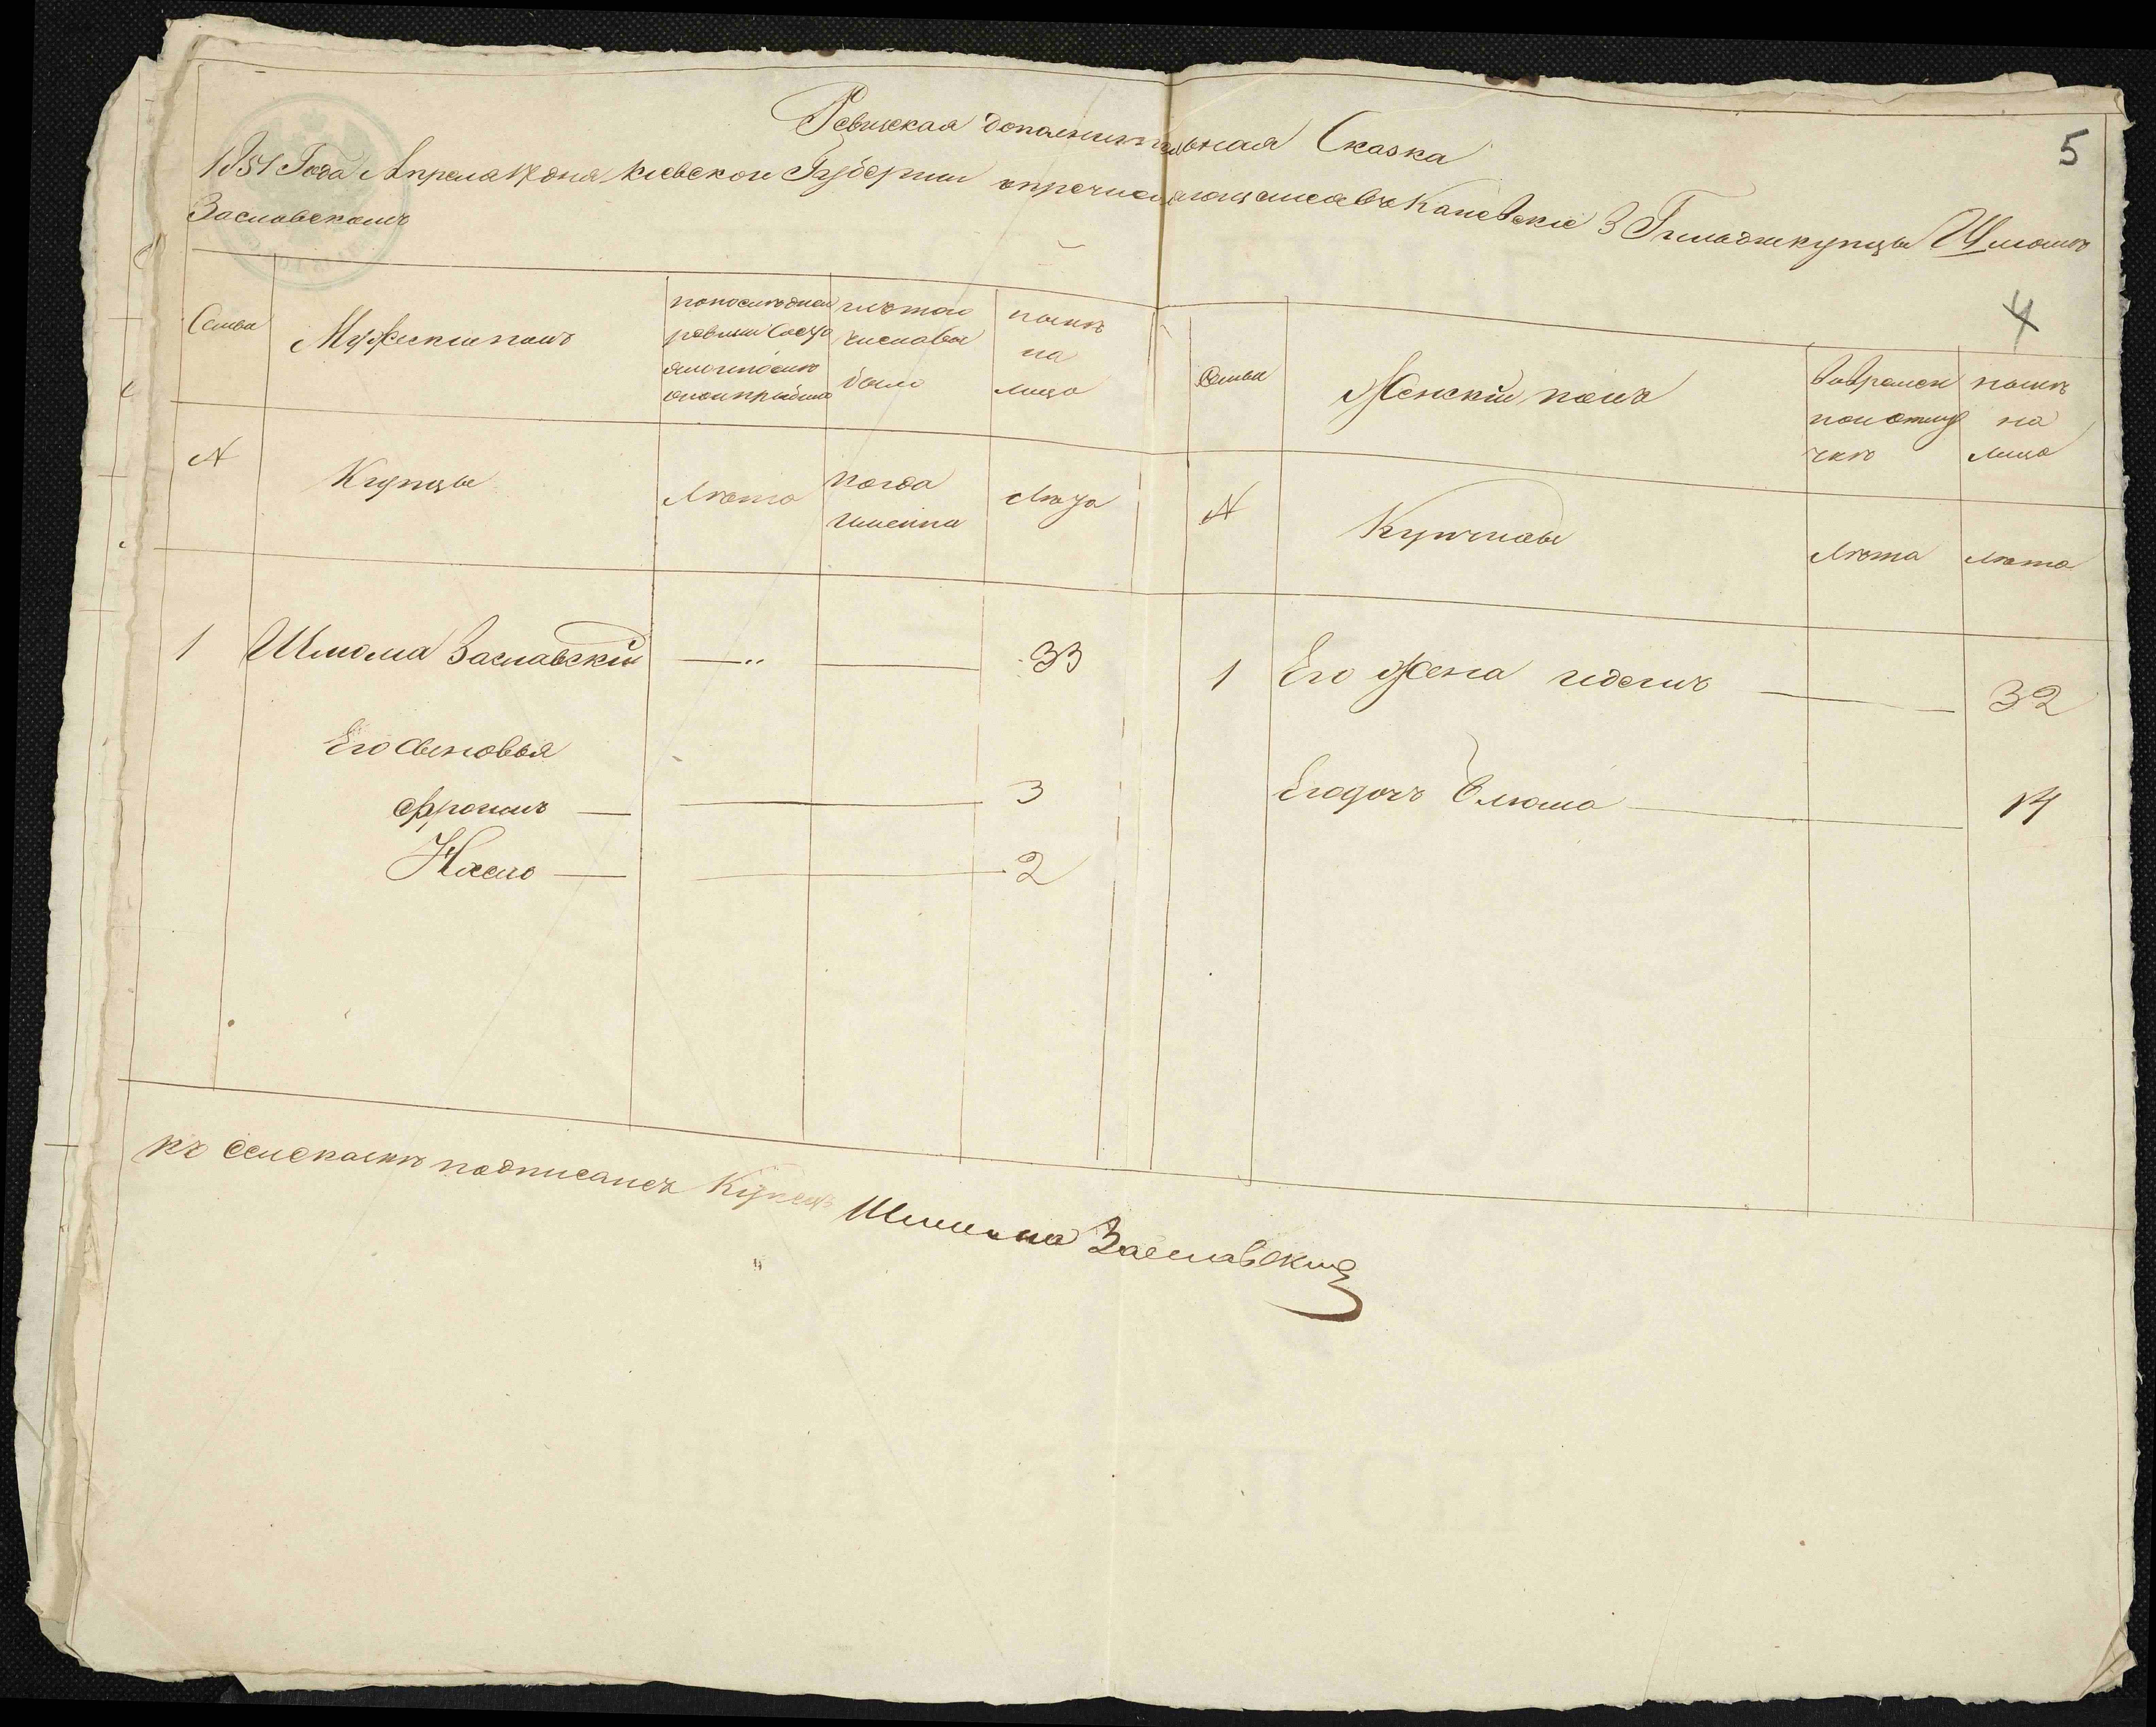 Ревизская дополнительная Сказка
5
1851 Года Апреля дня Киевской Губернии о причисляющимся въ Каневские 3 Гильдии купцы Шлиомъ
Заславскомъ
4
Семьи
Мужеский полъ
по последней
ревизии состо
яло и после
оной прибыло
изъ того
числа вы
было
ныне
на
лицо
Семьи
Женский полъ
Во времен
ной отлу
чке
ныне
на
лицо
№
Купцы
Лета
когда
именно
Лета
№
Купчихи
Лета
Лета
1 Шлиома Заславский — „ — 33
1 Его Жена — 32
Его Сыновья
Фроимъ — 3
Его дочь Блюма — 14
— 2
къ сей скаске подписался Купецъ Шлиома Заславский